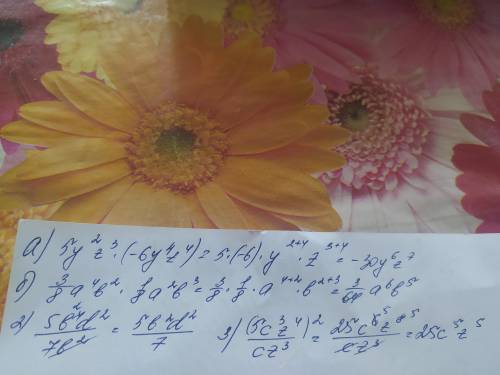 а) 5y²z³·(-6y⁴z⁴)=5·(-6)·y²⁺⁴·z³⁺⁴=-30y⁶z⁷
б) 3/8 a⁴b²·1/8 a²b³=3/8·1/8·a⁴⁺²·b²⁺³=3/64 a⁶b⁵
2) 5b⁴d²/7b²=5b²d²/7 3) (5c³z⁴)²/cz³=25c⁶z⁸/cz³=25c⁵z⁵